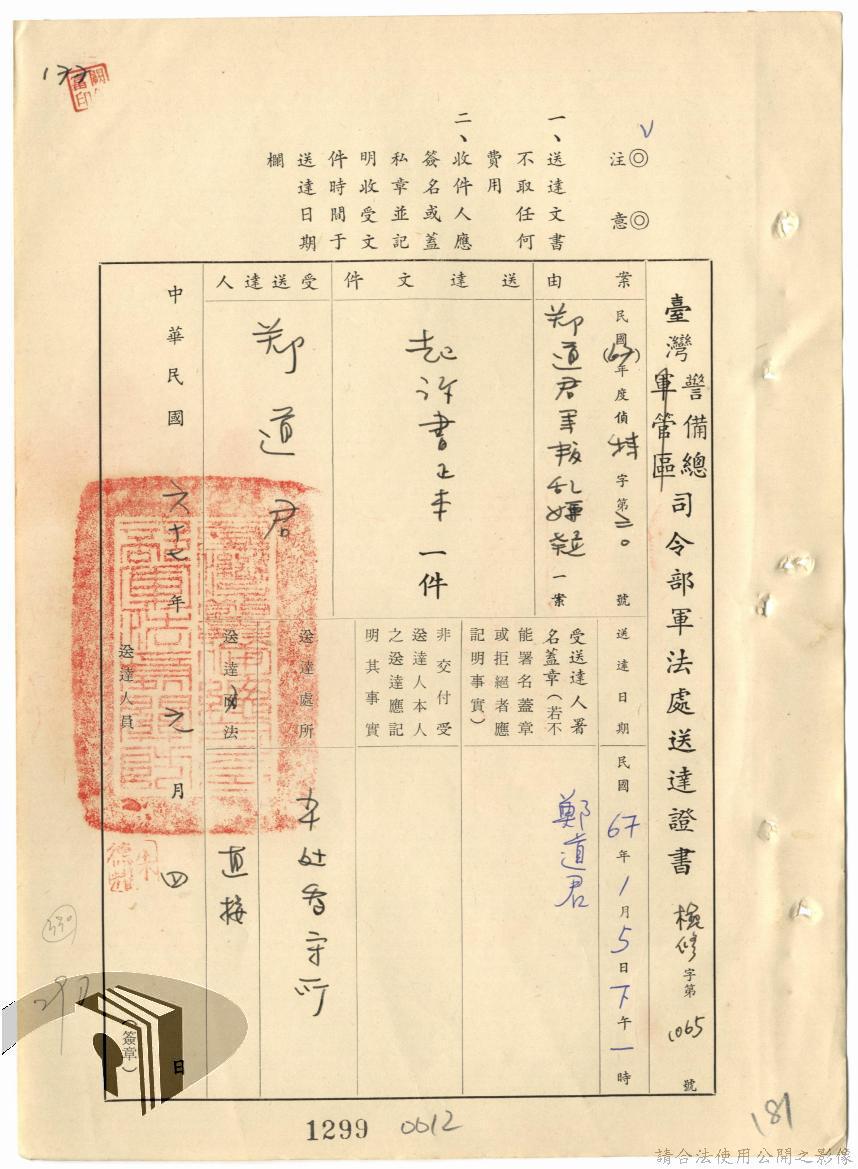 133
◎注意◎
一、送達文書
不取任何
費用
二、收件人應
簽名或蓋
私章並記
明收受文
件時間于
送達日期
欄
臺灣警備總軍管區司令部軍法處送達證書
字第1065號
案由
民國(67)年度偵特字第 號
郑道君 叛乱嫌疑一案
送達文件
起诉書正本一件
受送達人
郑道君
送達日期
民國67年1月5日下午一時
受送達人署
名蓋章(若不
能署名蓋章
或拒絕者應
記明事實)
鄭道君
非交付受
送達人本人
之送達應記
明其事實
送達處所
本处看守所
送達方法
直接
中華民國六十七年元月四日
送達人員
(簽章)
1299
0012
181
請合法使用公開之影像